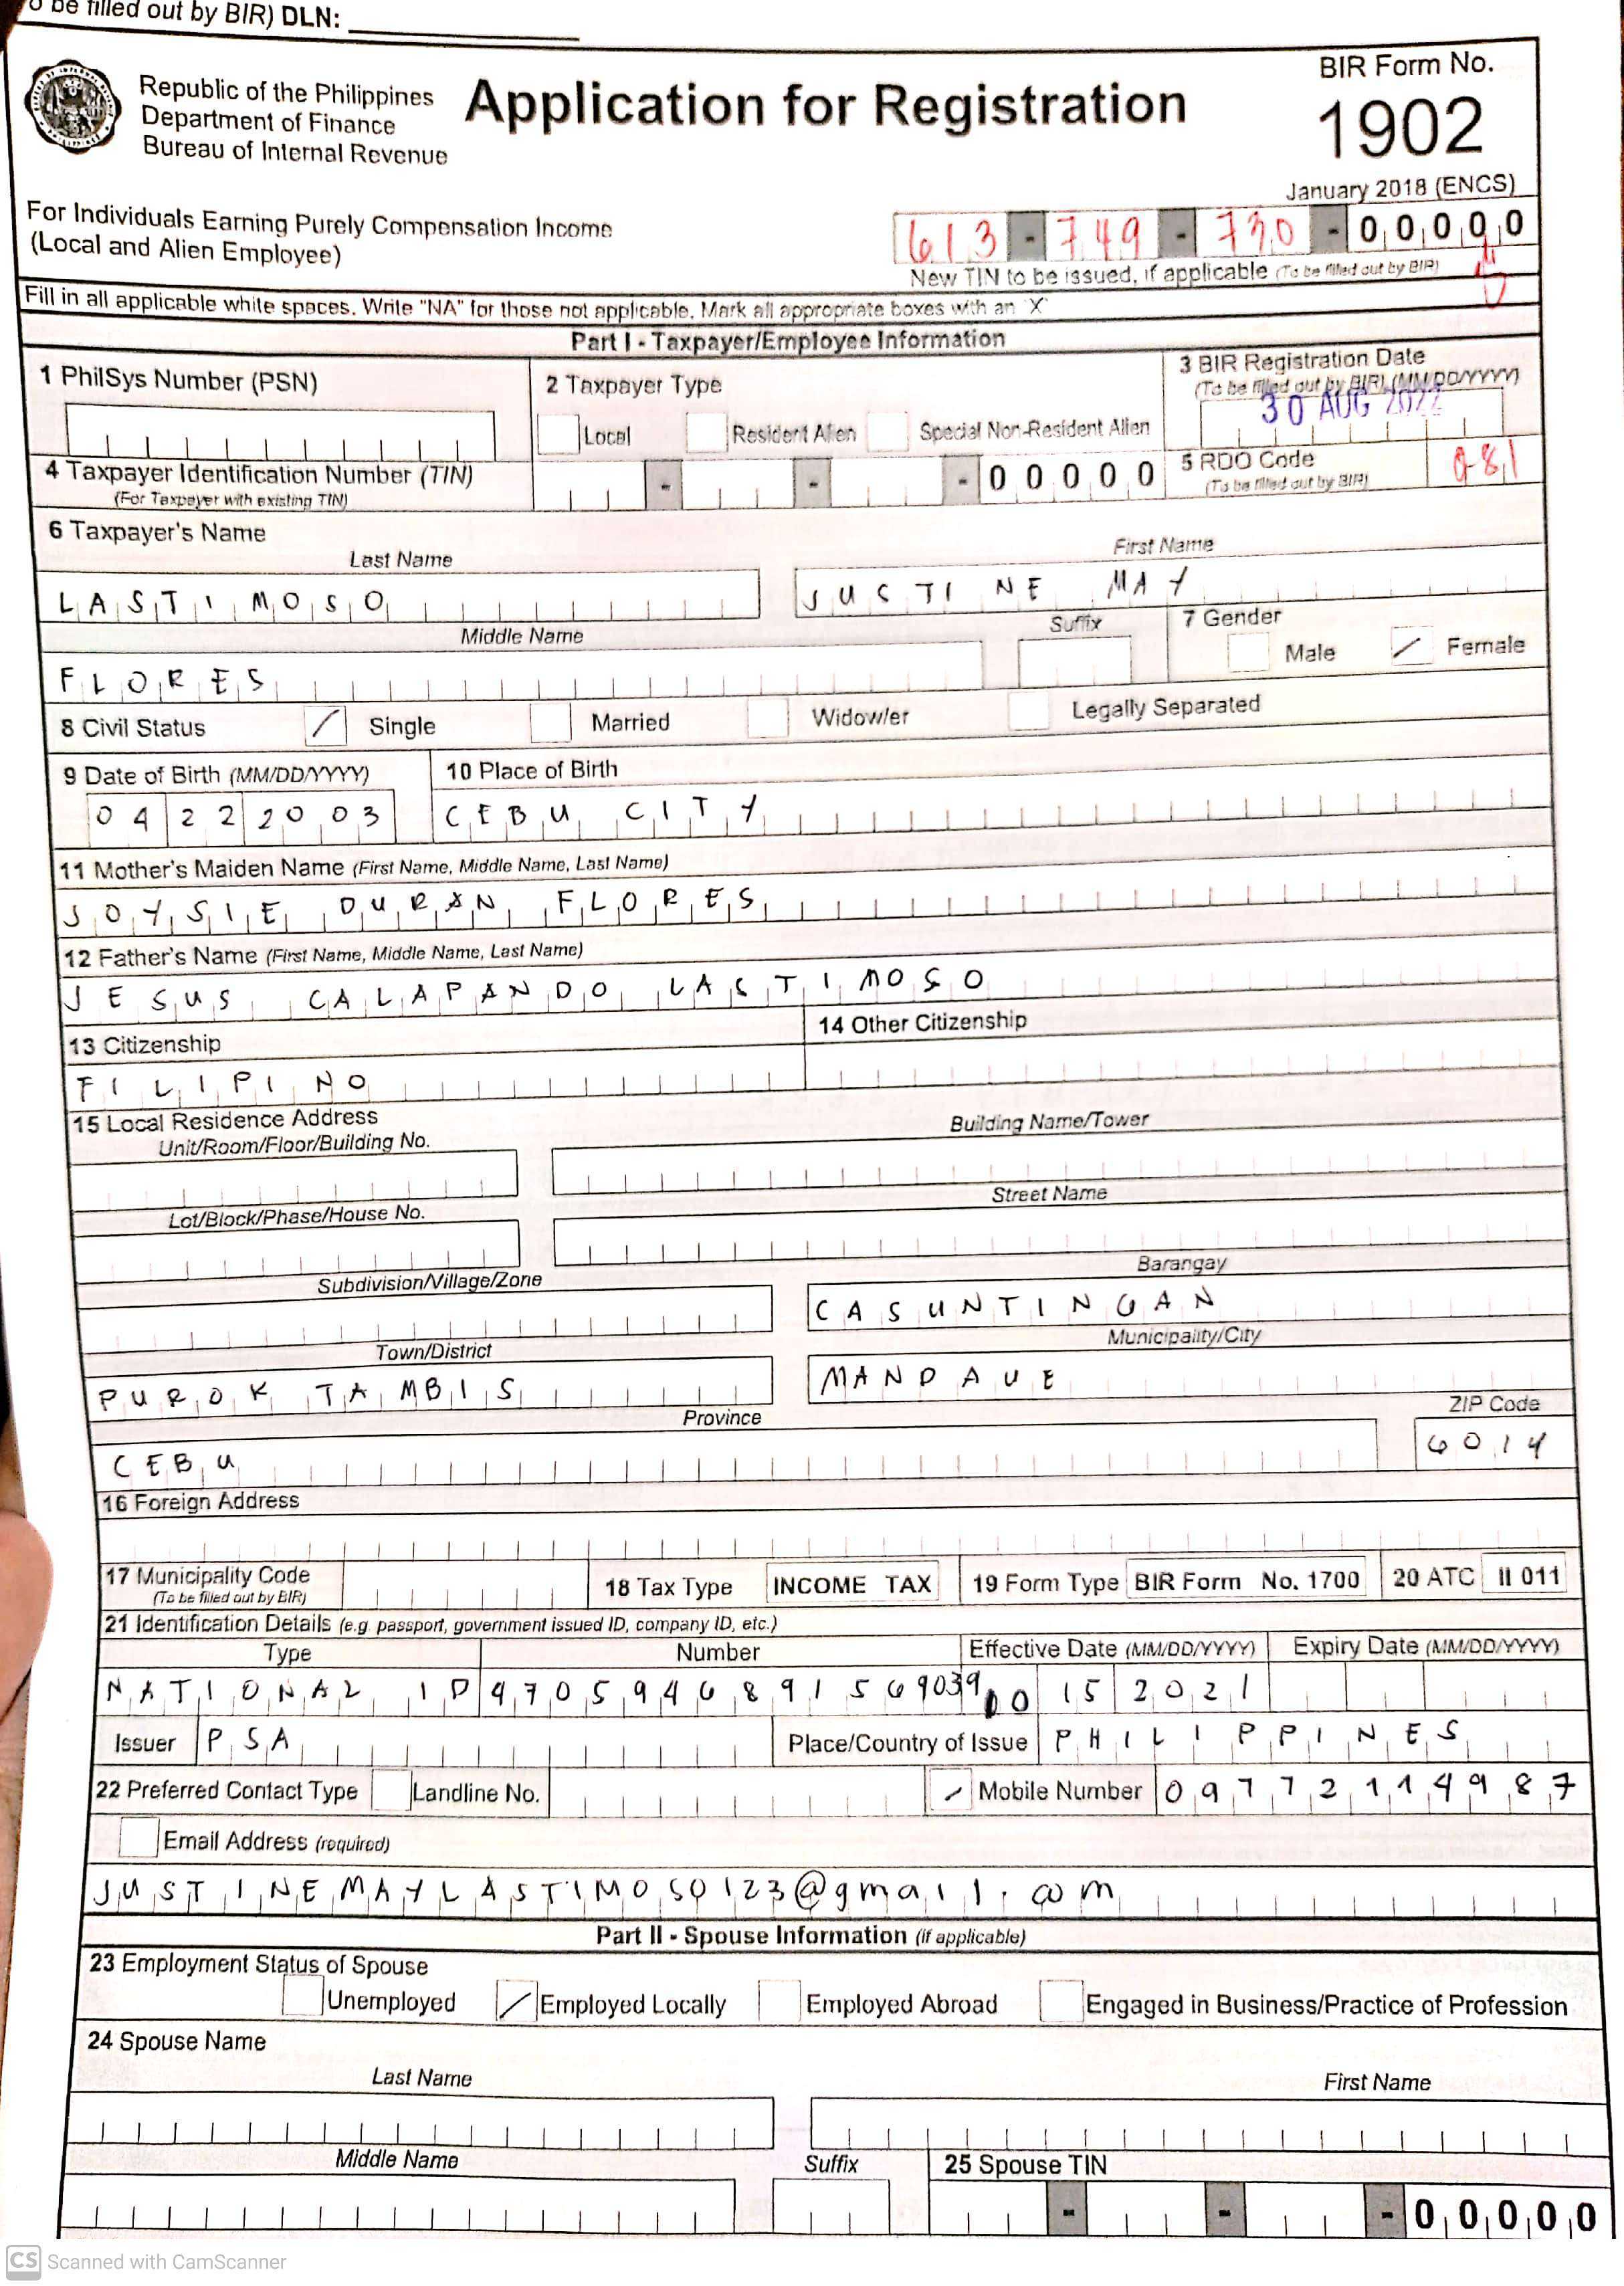 o be filled out by BIR) DLN:
Republic of the Philippines
Department of Finance
Bureau of Internal Revenue
Application for Registration
BIR Form No.
1902
January 2018 (ENCS)
For Individuals Earning Purely Compensation Income
(Local and Alien Employee)
613 - 749 - 730 - 00000
New TIN to be issued, if applicable (To be filled out by BIR)
Fill in all applicable white spaces. Write "NA" for those not applicable. Mark all appropriate boxes with an "X"
Part I - Taxpayer/Employee Information
1 PhilSys Number (PSN)
2 Taxpayer Type
Local Resident Alien Special Non-Resident Alien
3 BIR Registration Date
(To be filled out by BIR) (MM/DD/YYYY)
30 AUG 2022
4 Taxpayer Identification Number (TIN)
(For Taxpayer with existing TIN)
- - - 00000
5 RDO Code
(To be filled out by BIR)
081
6 Taxpayer's Name
Last Name First Name
LASTIMOSO JUSTINE MAY
Middle Name Suffix
FLORES
7 Gender
Male / Female
8 Civil Status / Single Married Widow/er Legally Separated
9 Date of Birth (MM/DD/YYYY) 10 Place of Birth
04 22 2003 CEBU CITY
11 Mother's Maiden Name (First Name, Middle Name, Last Name)
JOYSIE DURAN FLORES
12 Father's Name (First Name, Middle Name, Last Name)
JESUS CALAPANDO LASTIMOSO
13 Citizenship 14 Other Citizenship
FILIPINO
15 Local Residence Address
Unit/Room/Floor/Building No. Building Name/Tower
Lot/Block/Phase/House No. Street Name
Subdivision/Village/Zone Barangay
CASUNTINGAN
Town/District Municipality/City
PUROK TAMBIS MANDAUE
Province ZIP Code
CEBU 6014
16 Foreign Address
17 Municipality Code
(To be filled out by BIR)
18 Tax Type INCOME TAX 19 Form Type BIR Form No. 1700 20 ATC II 011
21 Identification Details (e.g. passport, government issued ID, company ID, etc.)
Type Number Effective Date (MM/DD/YYYY) Expiry Date (MM/DD/YYYY)
NATIONAL ID 4705946891569039 15 2021
Issuer PSA Place/Country of Issue PHILIPPINES
22 Preferred Contact Type Landline No. / Mobile Number 09772114987
Email Address (required)
JUSTINEMAYLASTIMOSO123@gmail.com
Part II - Spouse Information (if applicable)
23 Employment Status of Spouse
Unemployed / Employed Locally Employed Abroad Engaged in Business/Practice of Profession
24 Spouse Name
Last Name First Name
Middle Name Suffix 25 Spouse TIN
- - - 00000
CS Scanned with CamScanner